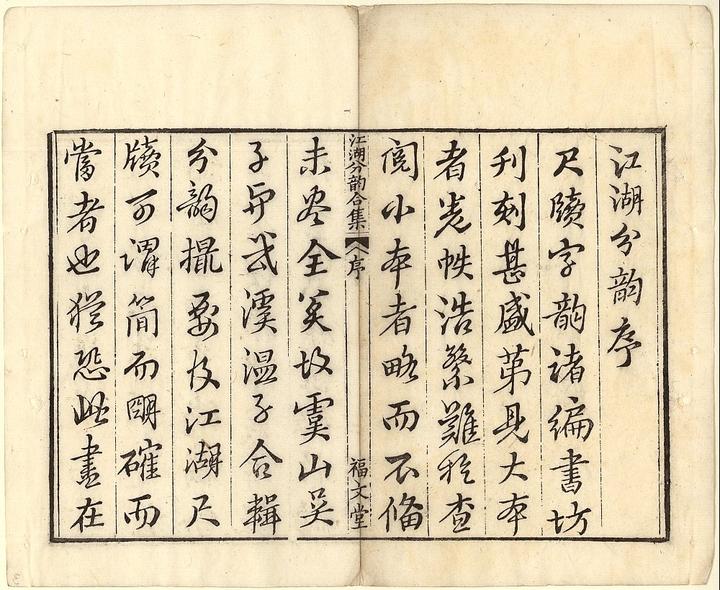 江湖分韵序
尺牘字韵諸編書坊
刊刻甚盛第見大本
者卷帙浩繁難於查
閱小本者略而不備
江湖分韵合集 序 福文堂
未尽全美故虞山吴
子與武溪温子合輯
分韵撮要及江湖尺
牘可謂簡而明確而
當者也猶恐此盡在